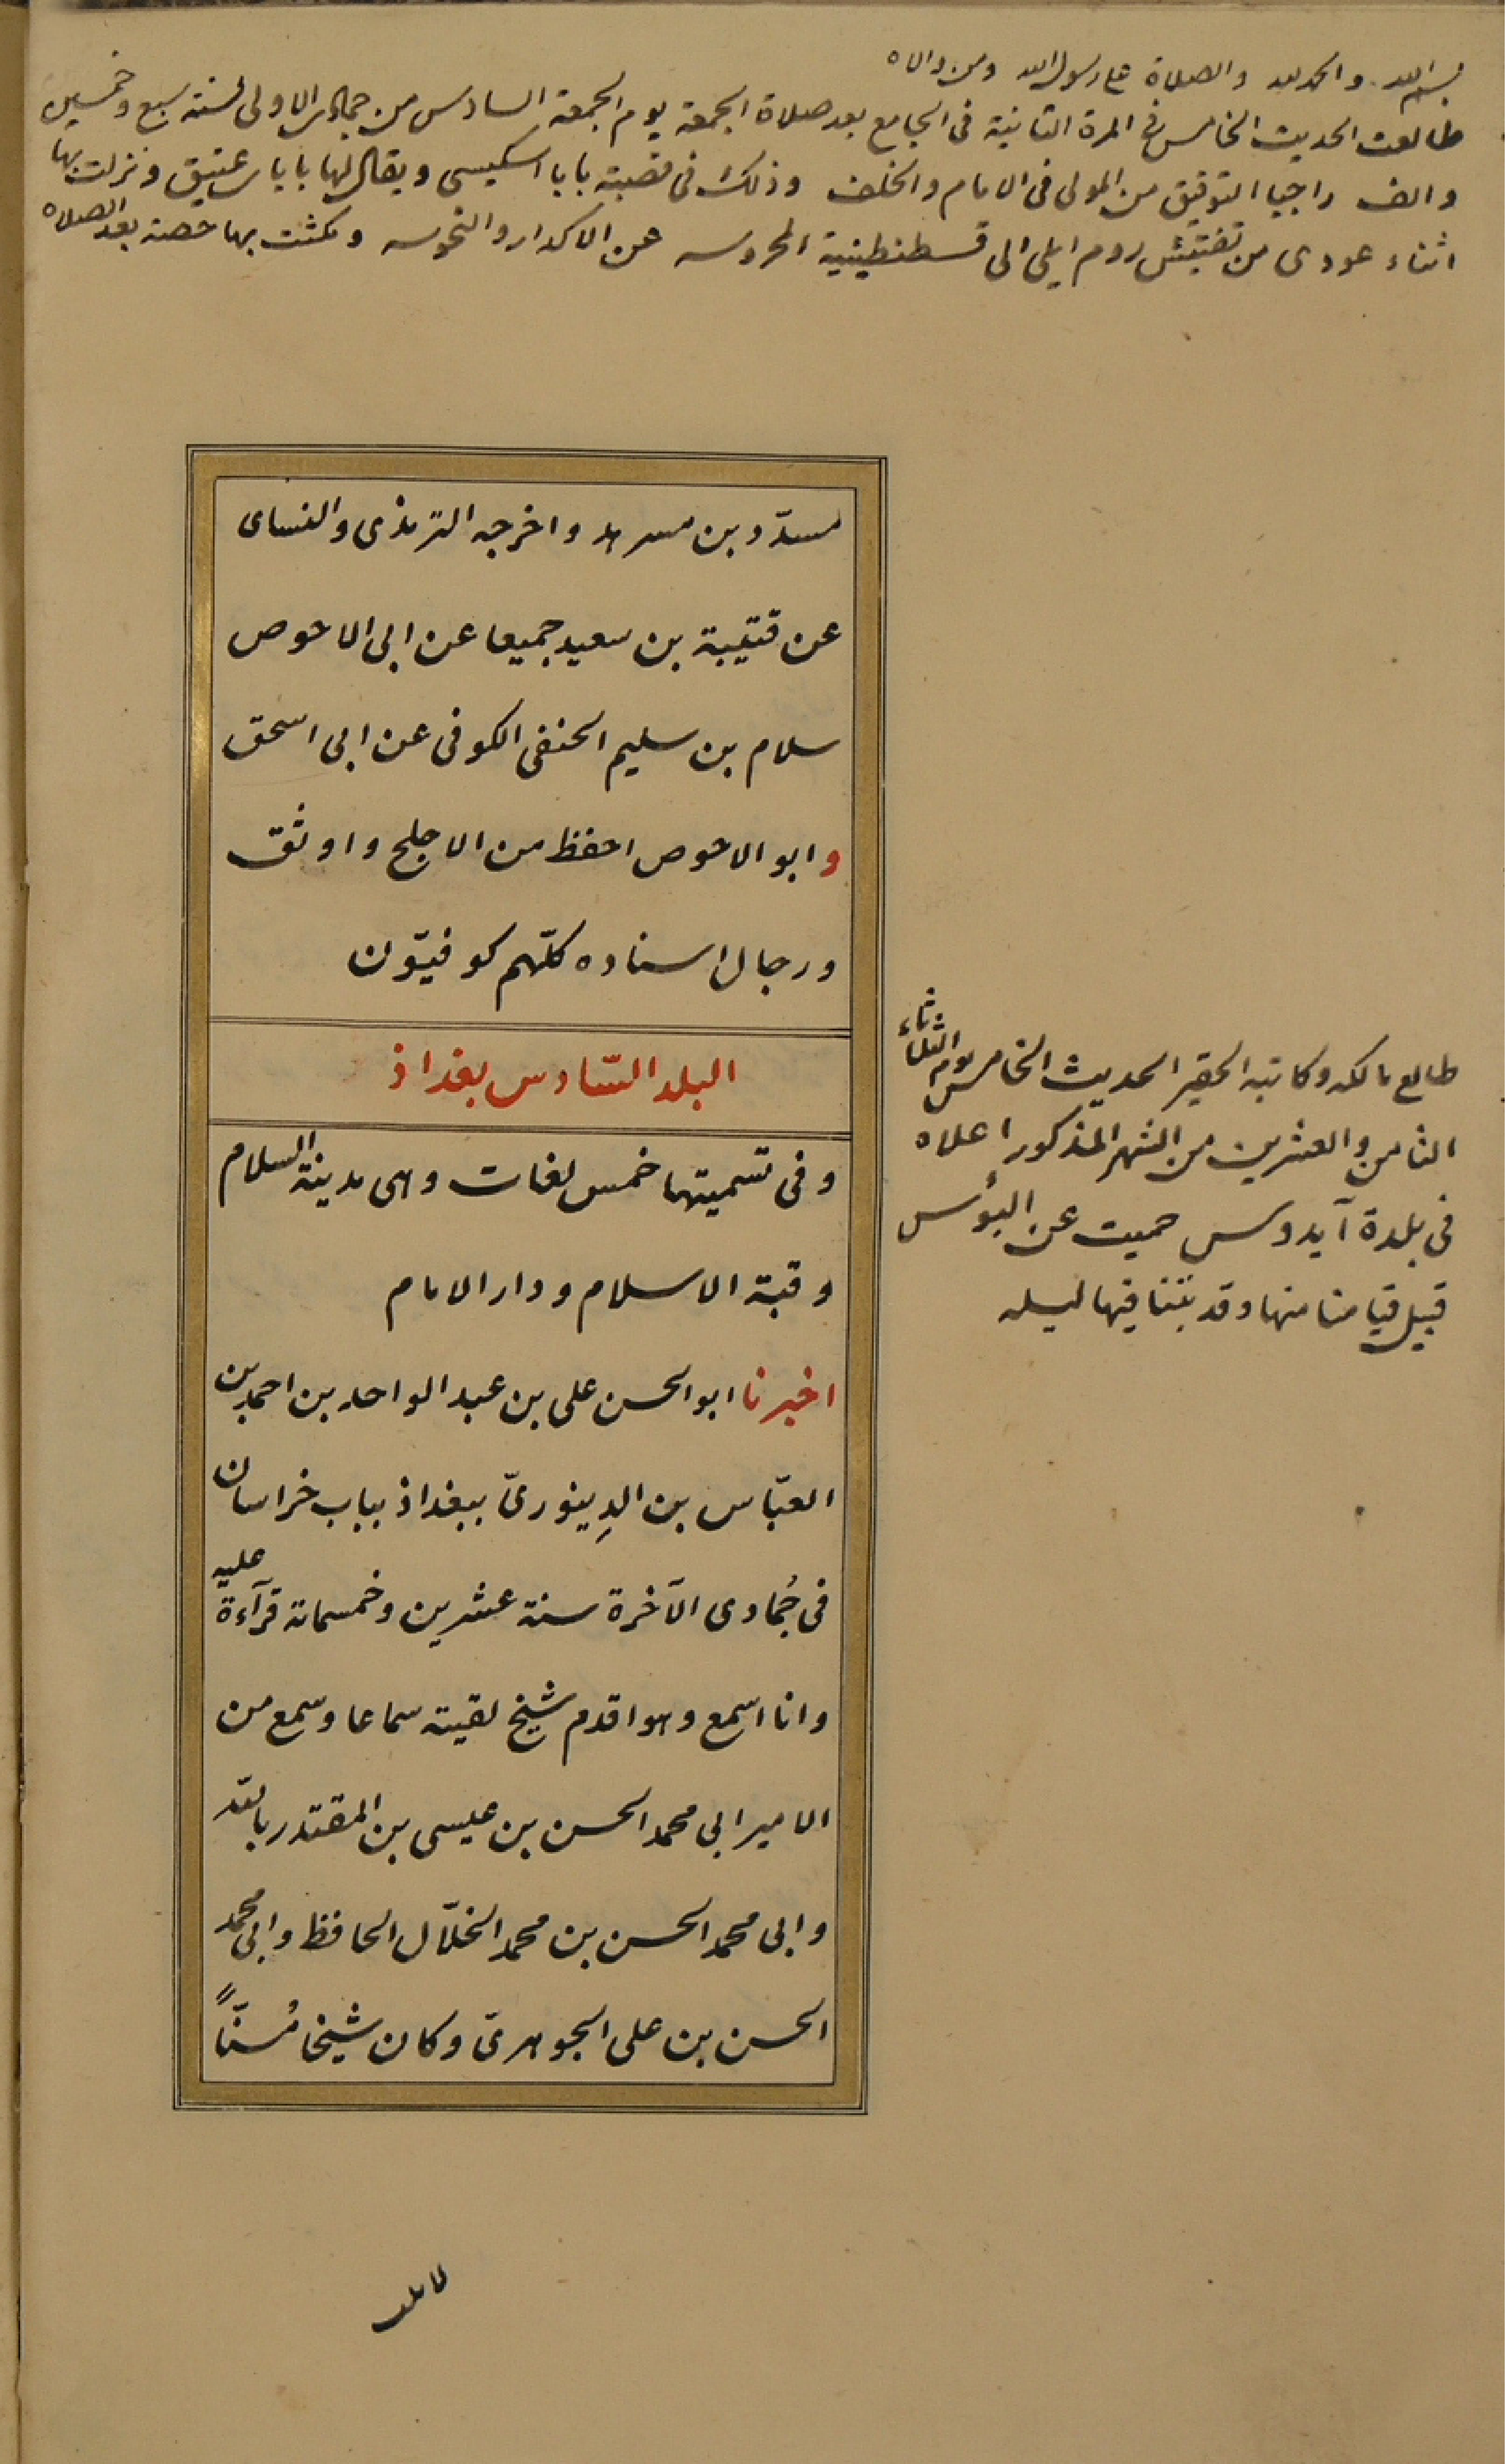 بسم الله والحمد لله والصلاة على رسول الله ومن والاه
طالعت الحديث الخامس في المرة الثانية في الجامع بعد صلاة الجمعة يوم الجمعة السادس من جمادى الاولى لسنة سبع وخمسين
والف راجيا التوفيق من المولى في الامام والخلف وذلك في قصبة بابا اسكيسى ويقال لها باباى عتيق ونزلت بها
اثناء عودى من تفتيش روم ايلى الى قسطنطينية المحروسه عن الاكدار والنحوسه ومكثت بها حصة بعد الصلاه
مسدّد بن مسرهد واخرجه الترمذى والنساى
عن قتيبة بن سعيد جميعا عن ابى الاحوص
سلام بن سليم الحنفى الكوفى عن ابى اسحق
وابو الاحوص احفظ من الاجلح واوثق
ورجال اسناده كلّهم كوفيّون
البلد السّادس بغداذ
وفى تسميتها خمس لغات وهى مدينة السلام
وقبة الاسلام ودار الامام
اخبرنا ابو الحسن على بن عبد الواحد بن احمد بن
العبّاس بن الدِينورىّ ببغداذ بباب خراسان
فى جُمادى الآخرة سنة عشرين وخمسماة قرآءة عليه
وانا اسمع وهو اقدم شيخ لقيته سماعا وسمع من
الامير ابى محمد الحسن بن عيسى بن المقتدر بالله
وابى محمد الحسن بن محمد الخلّال الحافظ وابى محمد
الحسن بن على الجوهرىّ وكان شيخا مُسنّاً
طالع مالكه وكاتبه الحقير الحديث الخامس يوم الثلاثاء
الثامن والعشرين من الشهر المذكور اعلاه
فى بلدة آيدوس حميت عن البؤس
قبيل قيامنا منها وقد بتنا فيها ليله